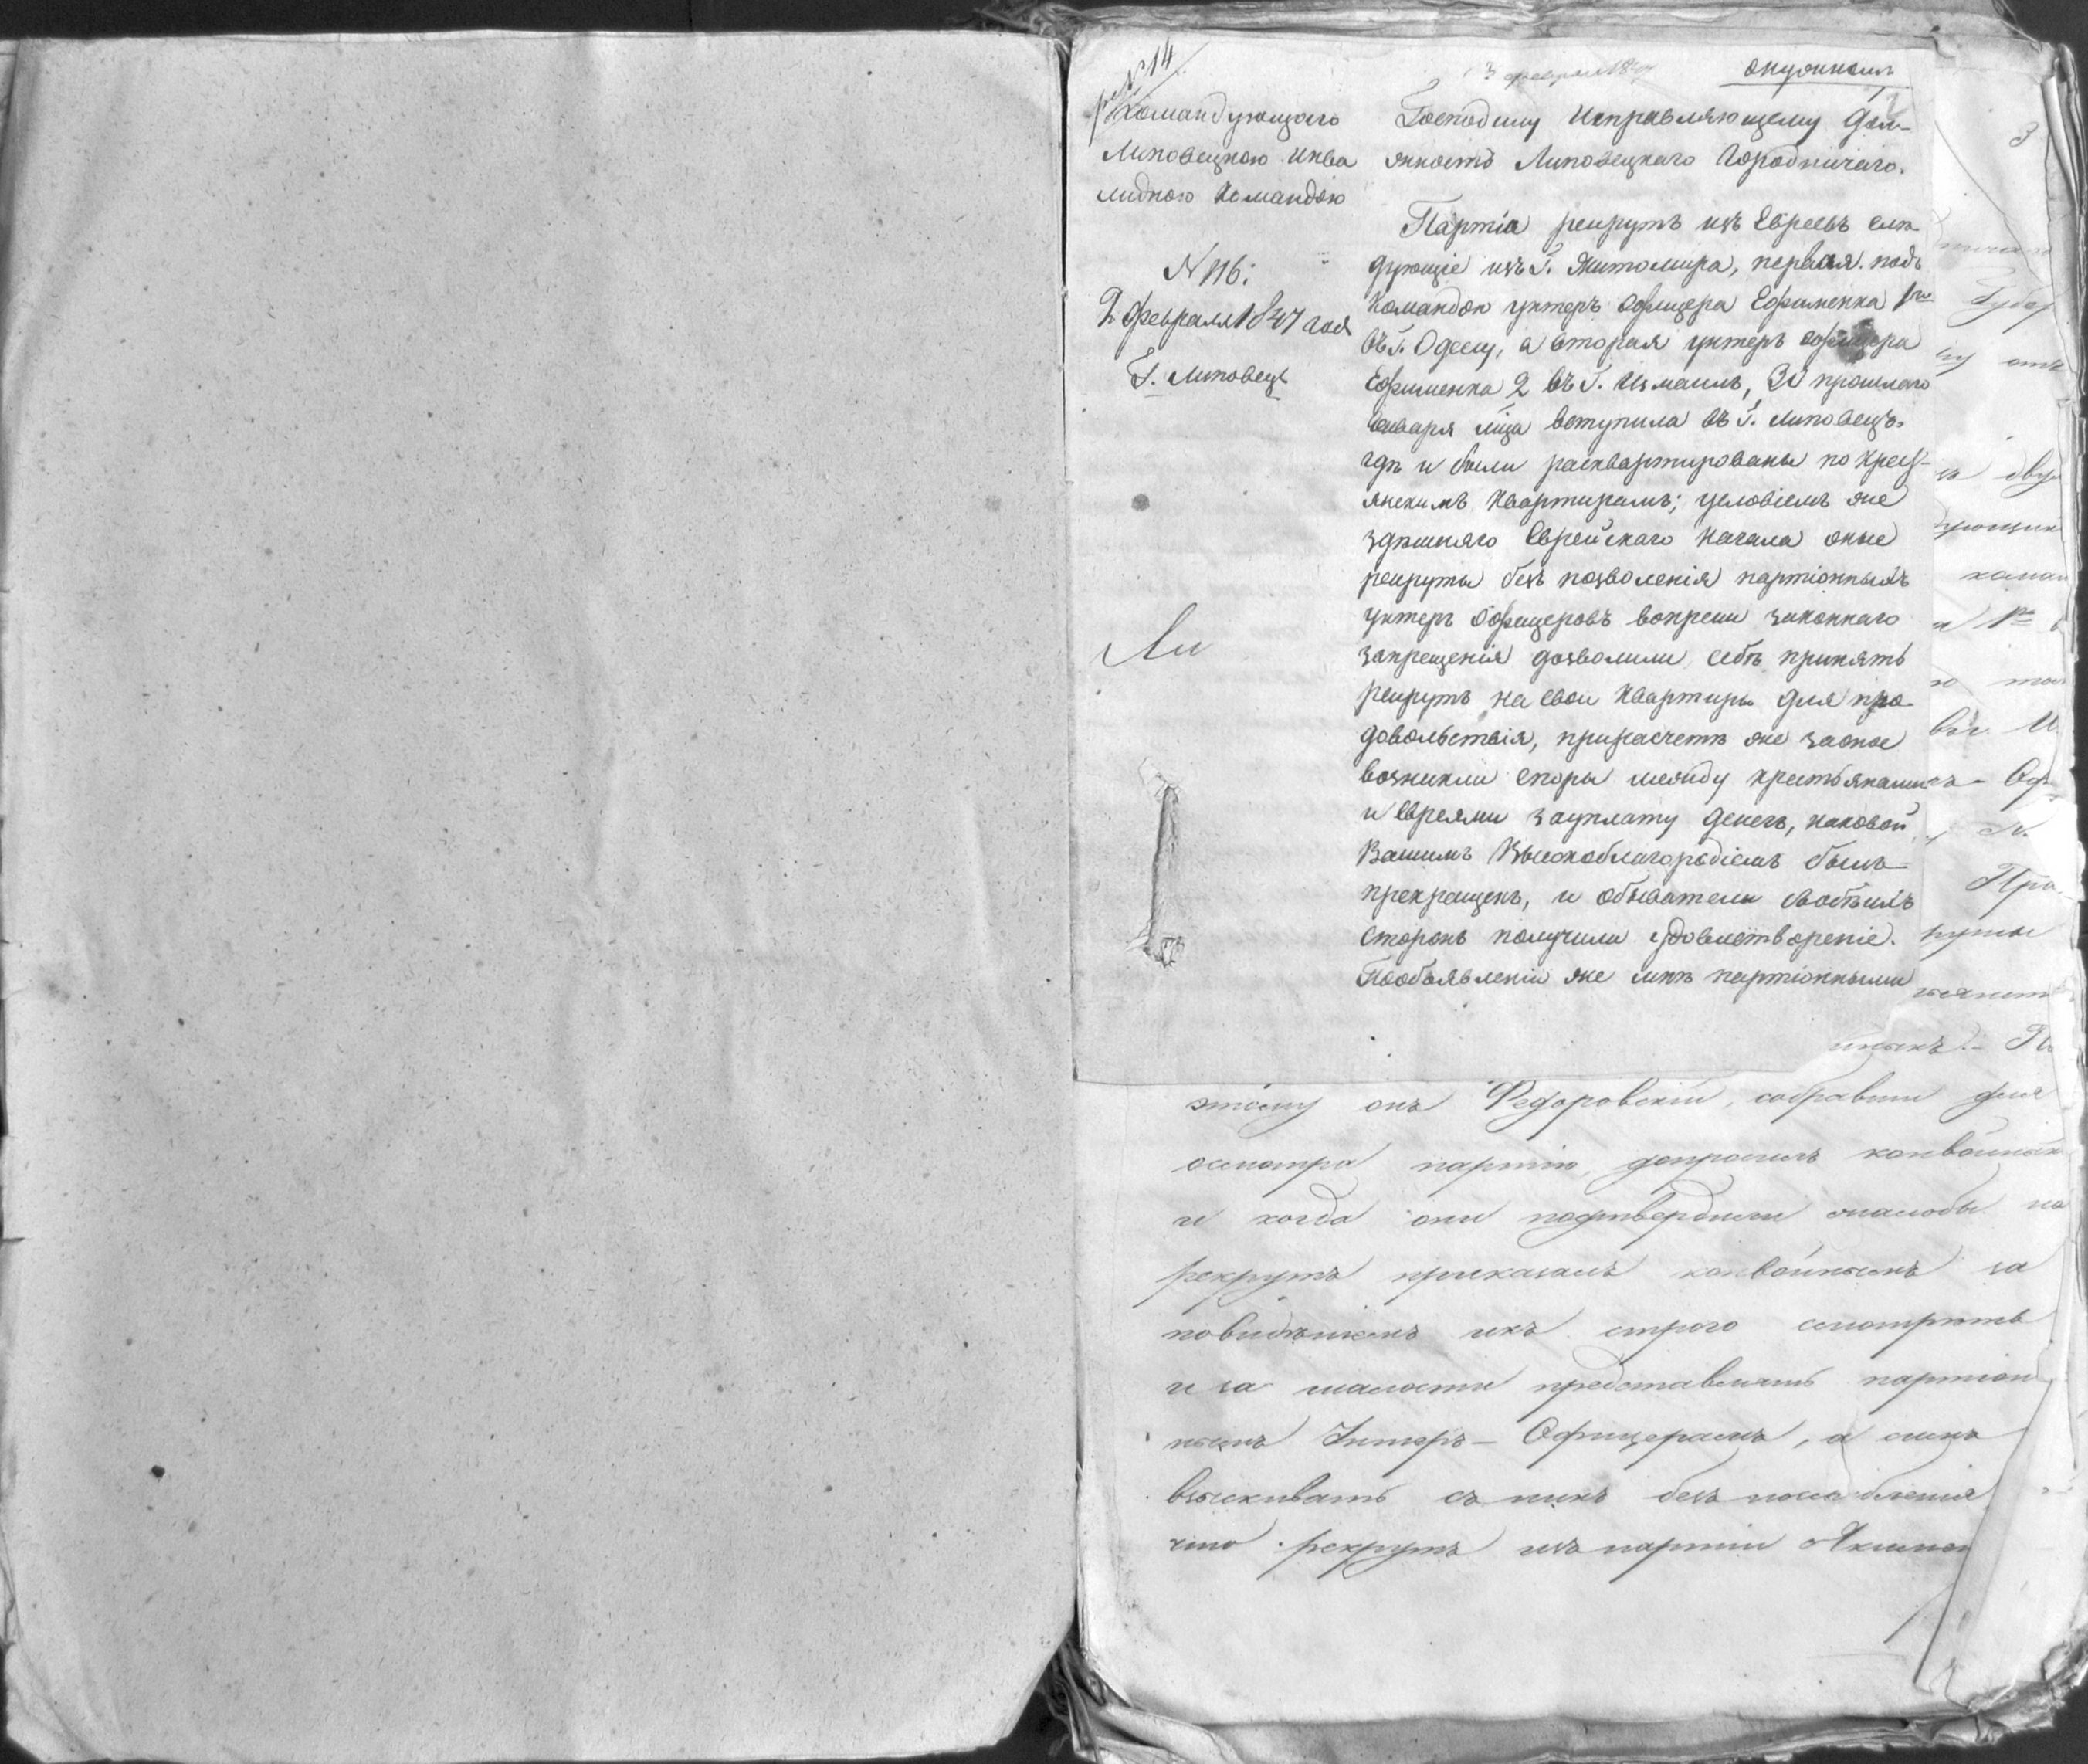 № 14
3 февраля 1847
Командующаго
Липовецкою инва
лидною Командою
N 116:
2 февраля 1847 года
Г. Липовецъ
Ли
Господину Исправляющему Дол-
жность Липовецкаго Городничаго.
Партіа рекрутъ изъ Евреевъ слѣ
дующіе изъ Г. Житомира, первая подъ
Командою унтеръ Офицера Ефименка 1го
въ Г. Одессу, а вторая унтеръ Офицера
Ефименка 2 въ Г. Измаилъ, 30 прошлаго
Генваря м҃ца вступила въ Г. Липовецъ
гдѣ и были расквартированы по Крес-
янскимъ Квартирамъ; условіемъ же
здѣшняго Еврейскаго Кагала оные
рекруты безъ позволенія партіонныхъ
унтеръ Офицеровъ вопреки законнаго
запрещенія дозволили себѣ принять
рекрутъ на свои Квартиры для про-
довольствія, прирасчетѣ же заоное
возникли споры между крестьянами
и Евреями зауплату денегъ, каковой
Вашимъ Высокоблагородіемъ былъ
прекращенъ, и обыватели
сторонъ получили удовлетвореніе.
Пообъявленіи же мнѣ партіонными
3
Губер
дующи
коман
и 1го
Оф
N.
Пра
этому онъ Федоровскій, собравши для
осмотра партію, допросилъ конвойныхъ
и когда они подтвердили жалобы на
рекрутъ приказалъ конвойнымъ за
ихъ строго смотрѣть
и за шалости представлять партіон
нымъ Унтеръ-Офицерамъ, а симъ
взыскивать съ нихъ безъ послабленія
что рекрутъ изъ партіи